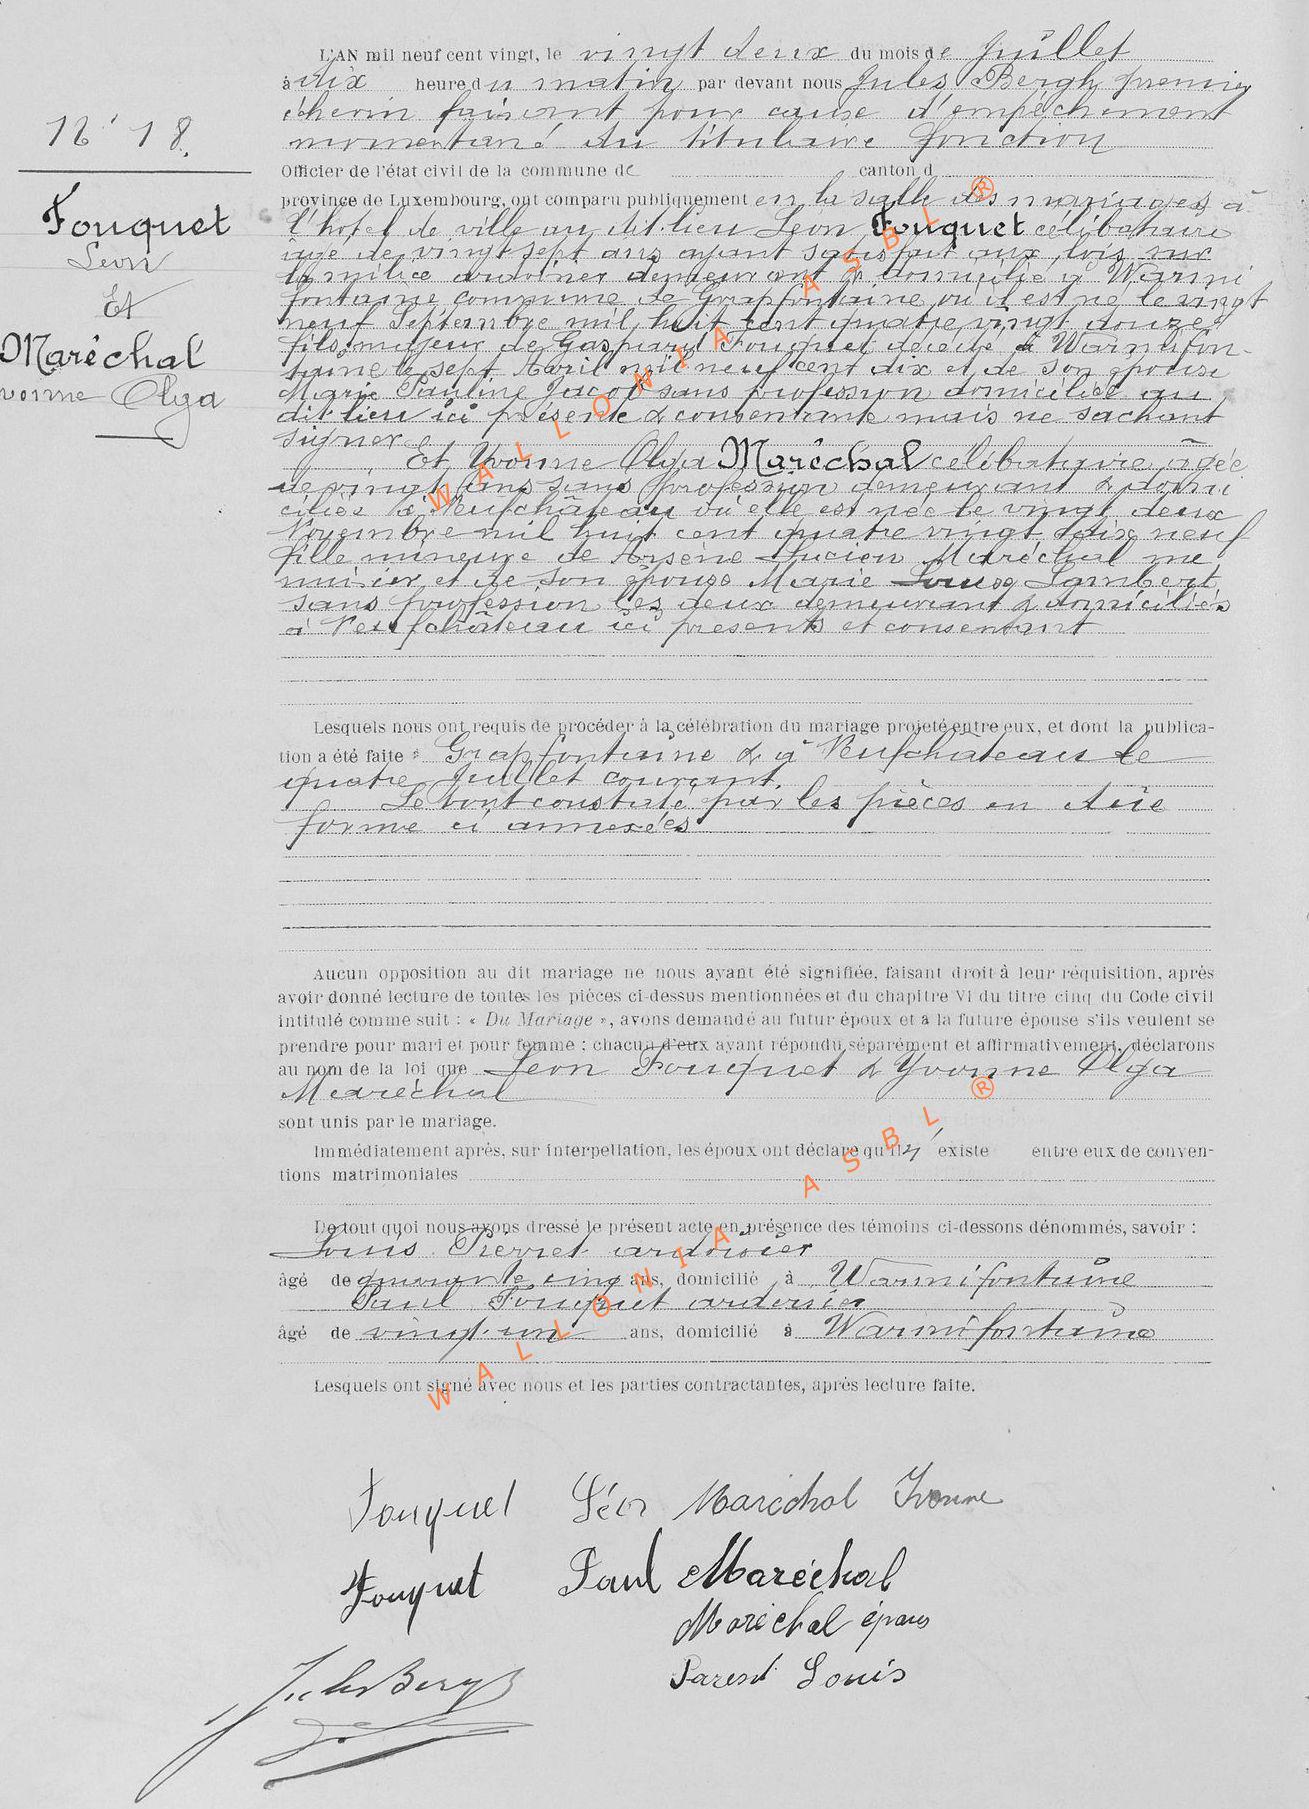 L'AN mil neuf cent vingt, le vingt deux du mois de Juillet
à dix heure du matin par devant nous Jules Bergh premier
échevin faisant pour cause d'empêchement
momentané du titulaire fonction
Officier de l'état civil de la commune de canton d
province de Luxembourg, ont comparu publiquement en la salle des mariages à
l'hotel de ville au dit lieu Léon Fouquet célibataire
âgé de vingt sept ans ayant satisfait aux lois sur
la milice ardoisier demeurant & domicilié à Warmi
fontaine commune de Grapfontaine où il est né le vingt
neuf Septembre mil huit cent quatre vingt douze
fils majeur de Gaspard Fouquet décédé à Warmifon-
taine le sept Avril mil neuf cent dix et de son épouse
Marie Pauline Jacob sans profession domiciliée au
dit lieu ici présente & consentante mais ne sachant
signer
Et Yvonne Olga Maréchal célibataire âgée
de vingt ans sans profession demeurant & domi
ciliée à Neufchâteau où elle est née le vingt deux
Novembre mil huit cent quatre vingt dix neuf
fille mineure de Arsène Lucien Maréchal me
nuisier et de son épouse Marie Lambert
sans profession les deux demeurant & domiciliés
à Neufchâteau ici présents et consentant
N° 18.
Fouquet
Léon
Et
Maréchal
vonne Olga
Lesquels nous ont requis de procéder à la célébration du mariage projeté entre eux, et dont la publica-
tion a été faite à Grapfontaine & à Neufchâteau le
quatre Juillet courant.
Le tout constaté par les pièces en due
forme ci annexées
Aucun opposition au dit mariage ne nous ayant été signifiée, faisant droit à leur réquisition, après
avoir donné lecture de toutes les pièces ci-dessus mentionnées et du chapitre VI du titre cinq du Code civil
intitulé comme suit : « Du Mariage », avons demandé au futur époux et à la future épouse s'ils veulent se
prendre pour mari et pour femme ; chacun d'eux ayant répondu séparément et affirmativement, déclarons
au nom de la loi que Léon Fouquet & Yvonne Olga
Maréchal
sont unis par le mariage.
Immédiatement après, sur interpellation, les époux ont déclaré qu'il existe entre eux de conven-
tions matrimoniales
De tout quoi nous avons dressé le présent acte en présence des témoins ci-dessons dénommés, savoir :
Louis Pierret ardoisier
âgé de quarante cinq ans, domicilié à Warmifontaine
Paul Fouquet ardoisier
âgé de vingt-un ans, domicilié à Warmifontaine
Lesquels ont signé avec nous et les parties contractantes, après lecture faite.
Fouquet Léon Maréchal Yvonne
Fouquet Paul Maréchal
Maréchal épous
Louis
Jules Bergh
WALLONIA ASBL ®
WALLONIA ASBL ®